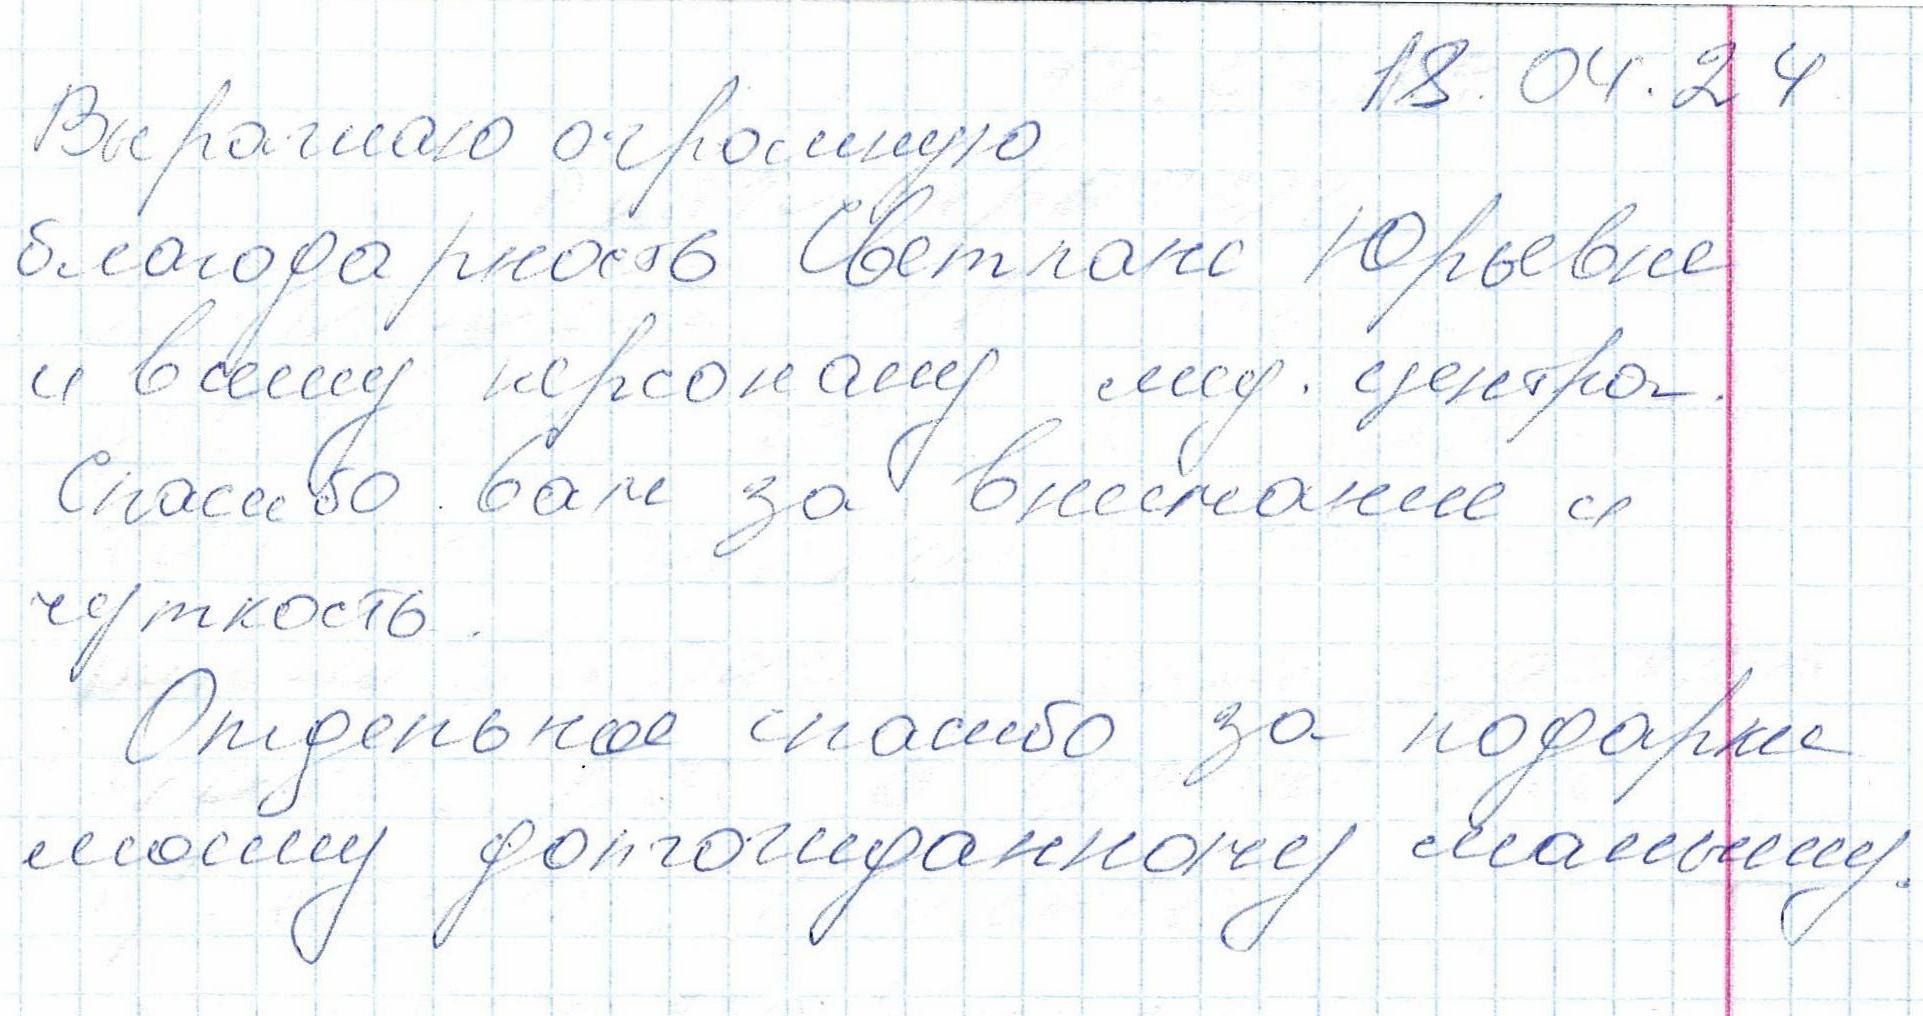 18.04.24
Выражаю огромную
благодарность Светлане Юрьевне
и всему персоналу мед. центра.
Спасибо вам за внимание и
чуткость.
Отдельное спасибо за подарки
моему долгожданному малышу.